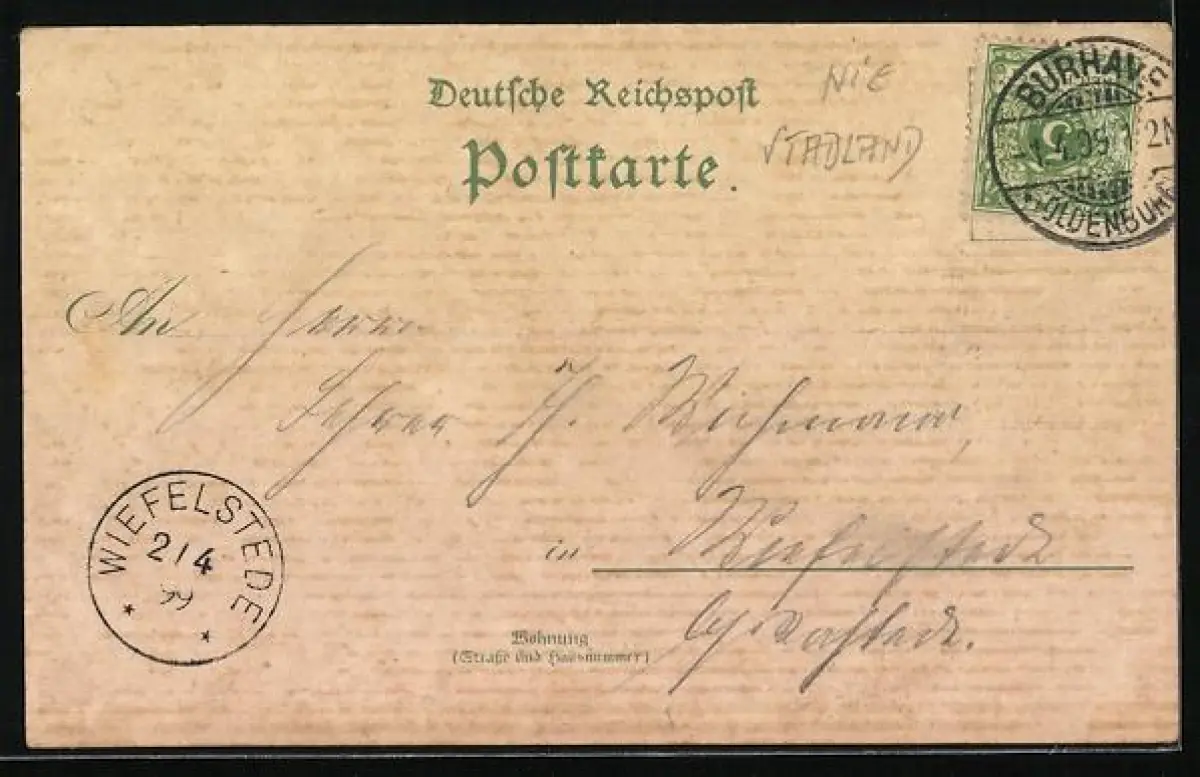 Deutsche Reichspost
Postkarte.
NIE
STADLAND
BURHAVE
1.4.99 1-2N
OLDENBURG
5
An Herrn
Lehrer H. Wichmann,
in Wiefelstede
b/ Rastede.
WIEFELSTEDE
2/4
99
Wohnung
(Straße und Hausnummer)